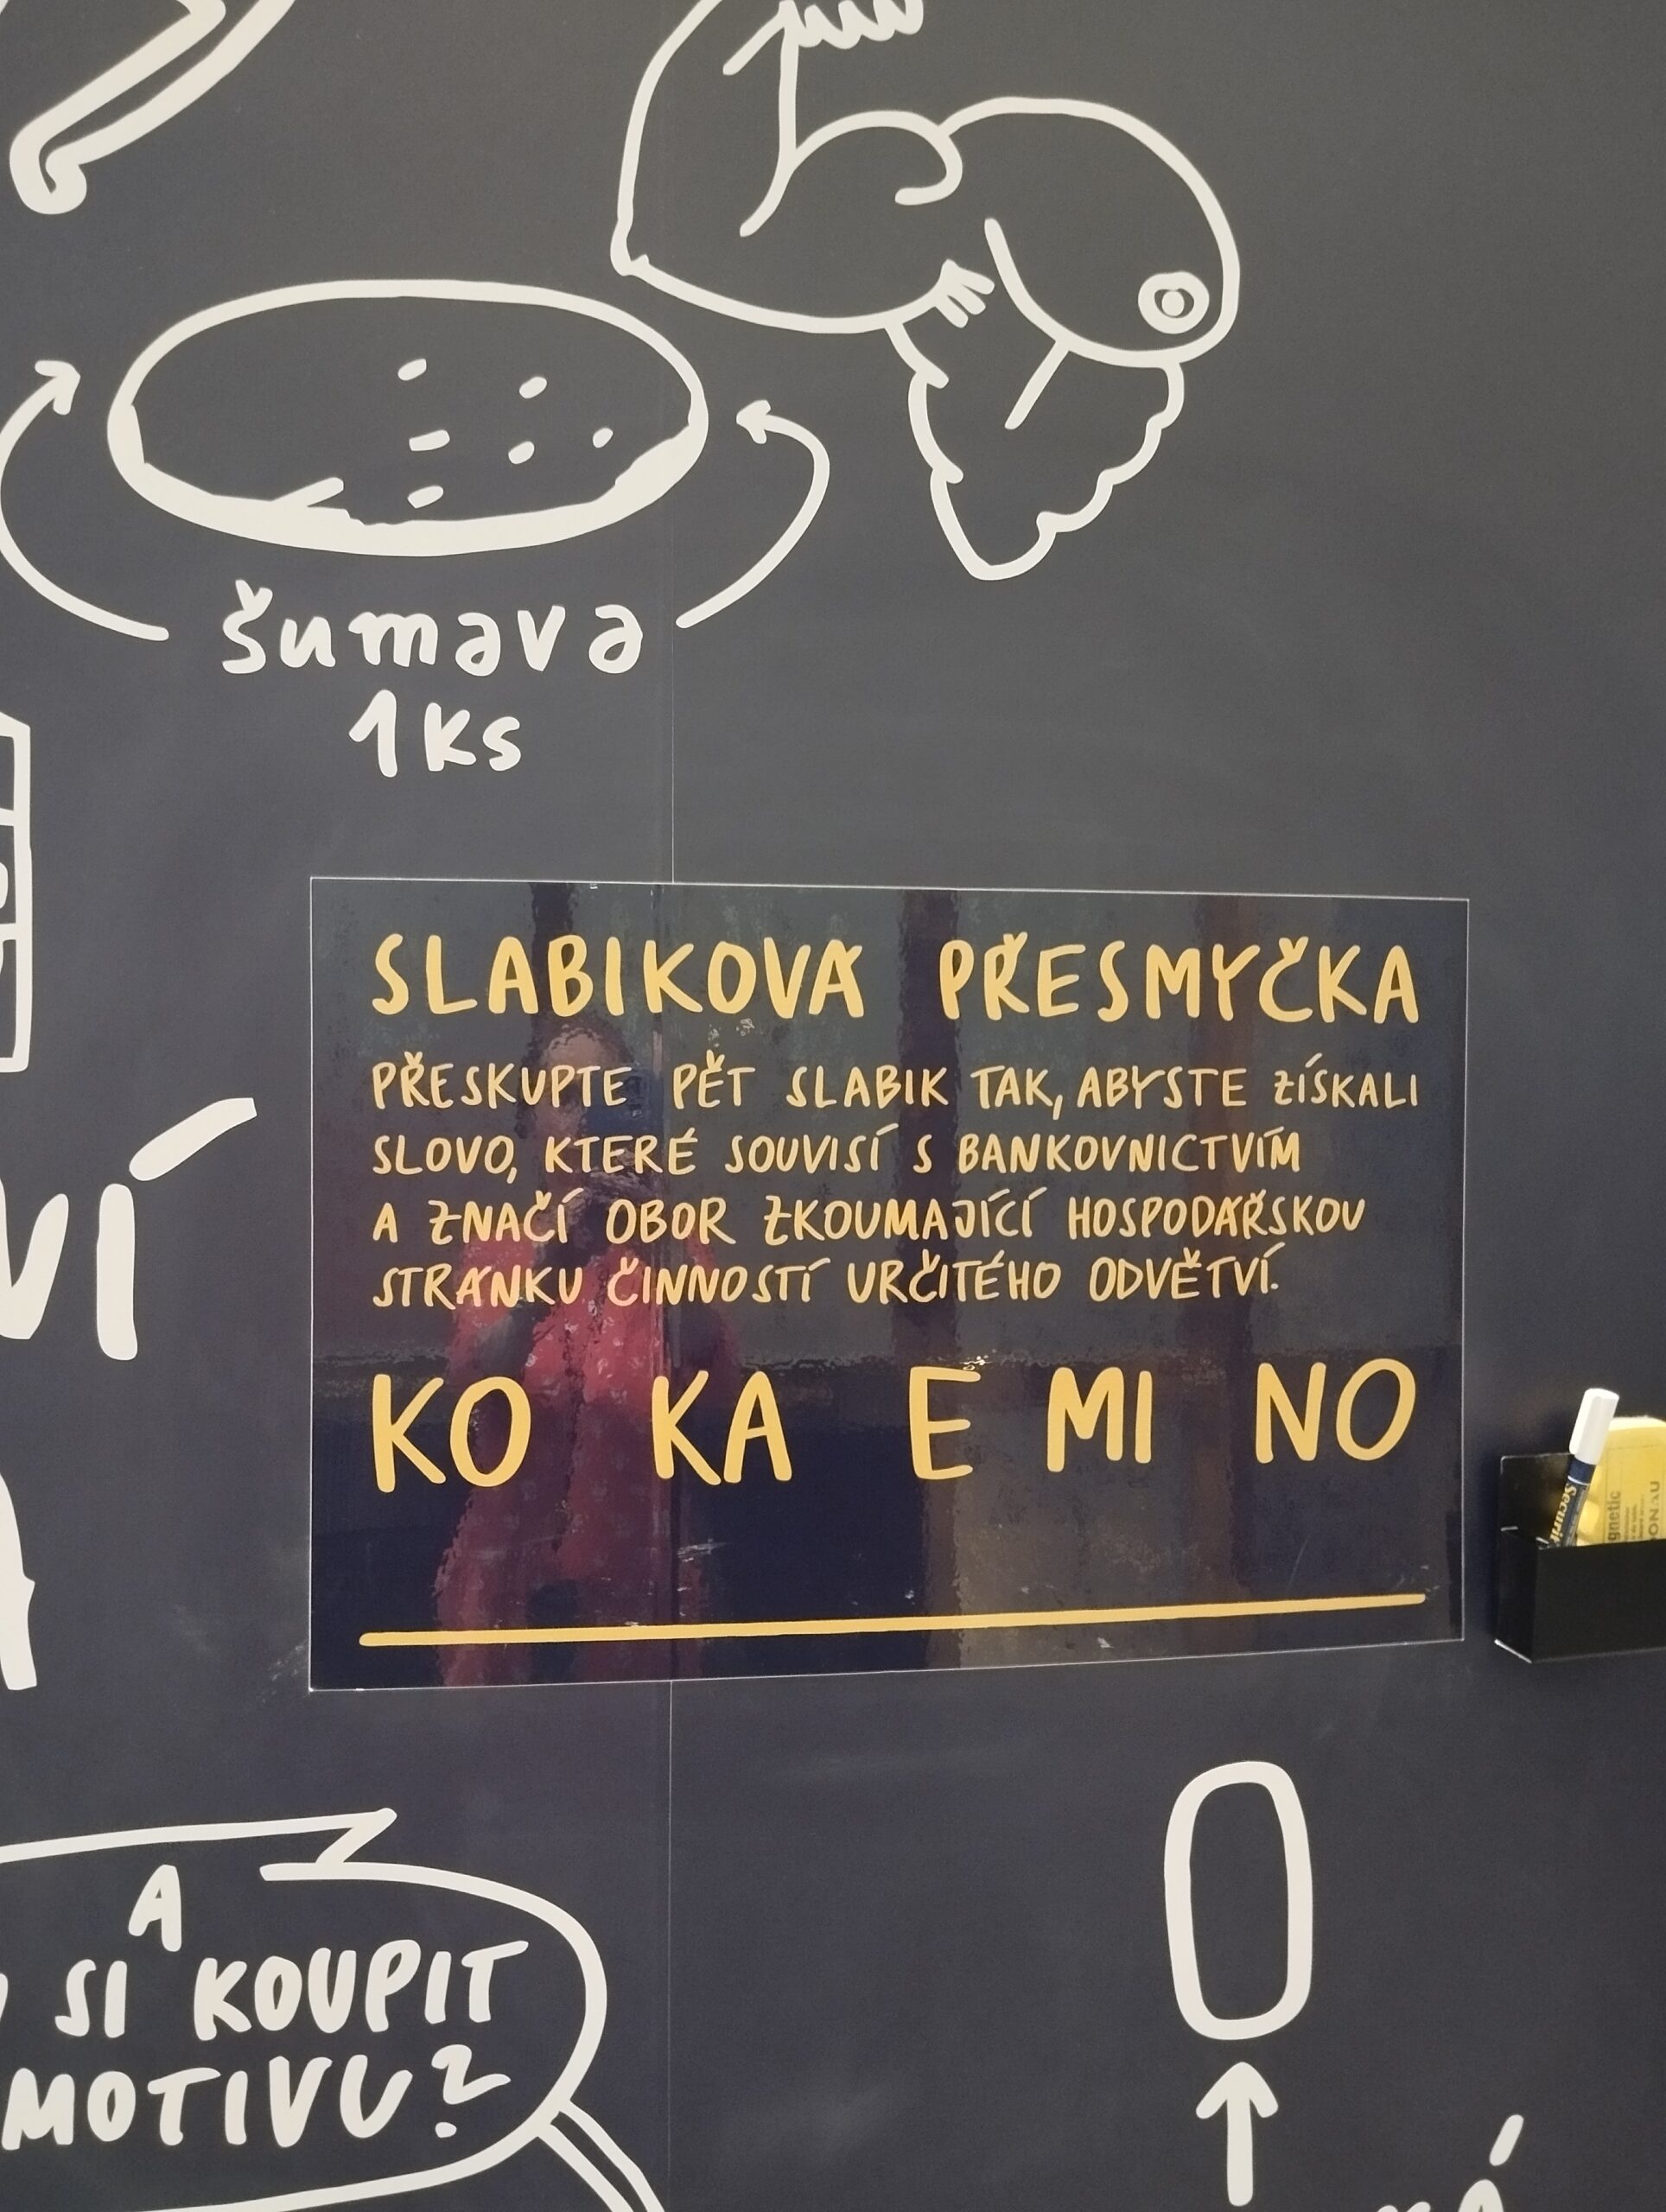 šumava
1ks
SLABIKOVÁ PŘESMYČKA
PŘESKUPTE PĚT SLABIK TAK, ABYSTE ZÍSKALI
SLOVO, KTERÉ SOUVISÍ S BANKOVNICTVÍM
A ZNAČÍ OBOR ZKOUMAJÍCÍ HOSPODÁŘSKOU
STRÁNKU ČINNOSTÍ URČITÉHO ODVĚTVÍ.
KO KA E MI NO
VÍ
A
SI KOUPIT
MOTIVU?